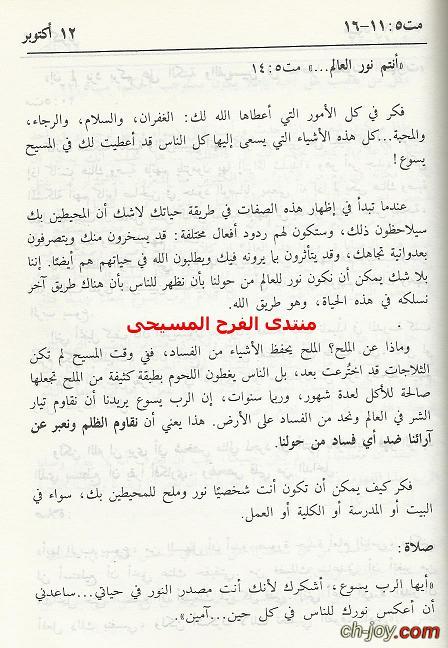 مت٥: ١١-١٦
١٢ أكتوبر
«أنتم نور العالم...» مت٥: ١٤
فكر في كل الأمور التي أعطاها الله لك: الغفران، والسلام، والرجاء،
والمحبة...كل هذه الأشياء التي يسعى إليها كل الناس قد أعطيت لك في المسيح
يسوع!
عندما تبدأ في إظهار هذه الصفات في طريقة حياتك لاشك أن المحيطين بك
سيلاحظون ذلك، وستكون لهم ردود أفعال مختلفة: قد يسخرون منك ويتصرفون
بعدوانية تجاهك، وقد يتأثرون بما يرونه فيك ويطلبون الله في حياتهم هم أيضًا. إننا
بلا شك يمكن أن نكون نور للعالم من حولنا بأن نظهر للناس بأن هناك طريق آخر
نسلكه في هذه الحياة، وهو طريق الله.
منتدى الفرح المسيحى
وماذا عن الملح؟ الملح يحفظ الأشياء من الفساد، ففي وقت المسيح لم تكن
الثلاجات قد اختُرعت بعد، بل الناس يغطون اللحوم بطبقة كثيفة من الملح تجعلها
صالحة للأكل لعدة شهور، وربما سنوات، إن الرب يسوع يريدنا أن نقاوم تيار
الشر في العالم ونحد من الفساد على الأرض. هذا يعني أن نقاوم الظلم ونعبر عن
آرائنا ضد أي فساد من حولنا.
فكر كيف يمكن أن تكون أنت شخصيًا نور وملح للمحيطين بك، سواء في
البيت أو المدرسة أو الكلية أو العمل.
صلاة:
«أيها الرب يسوع، أشكرك لأنك أنت مصدر النور في حياتي...ساعدني
أن أعكس نورك للناس في كل حين...آمين».
ch-joy.com